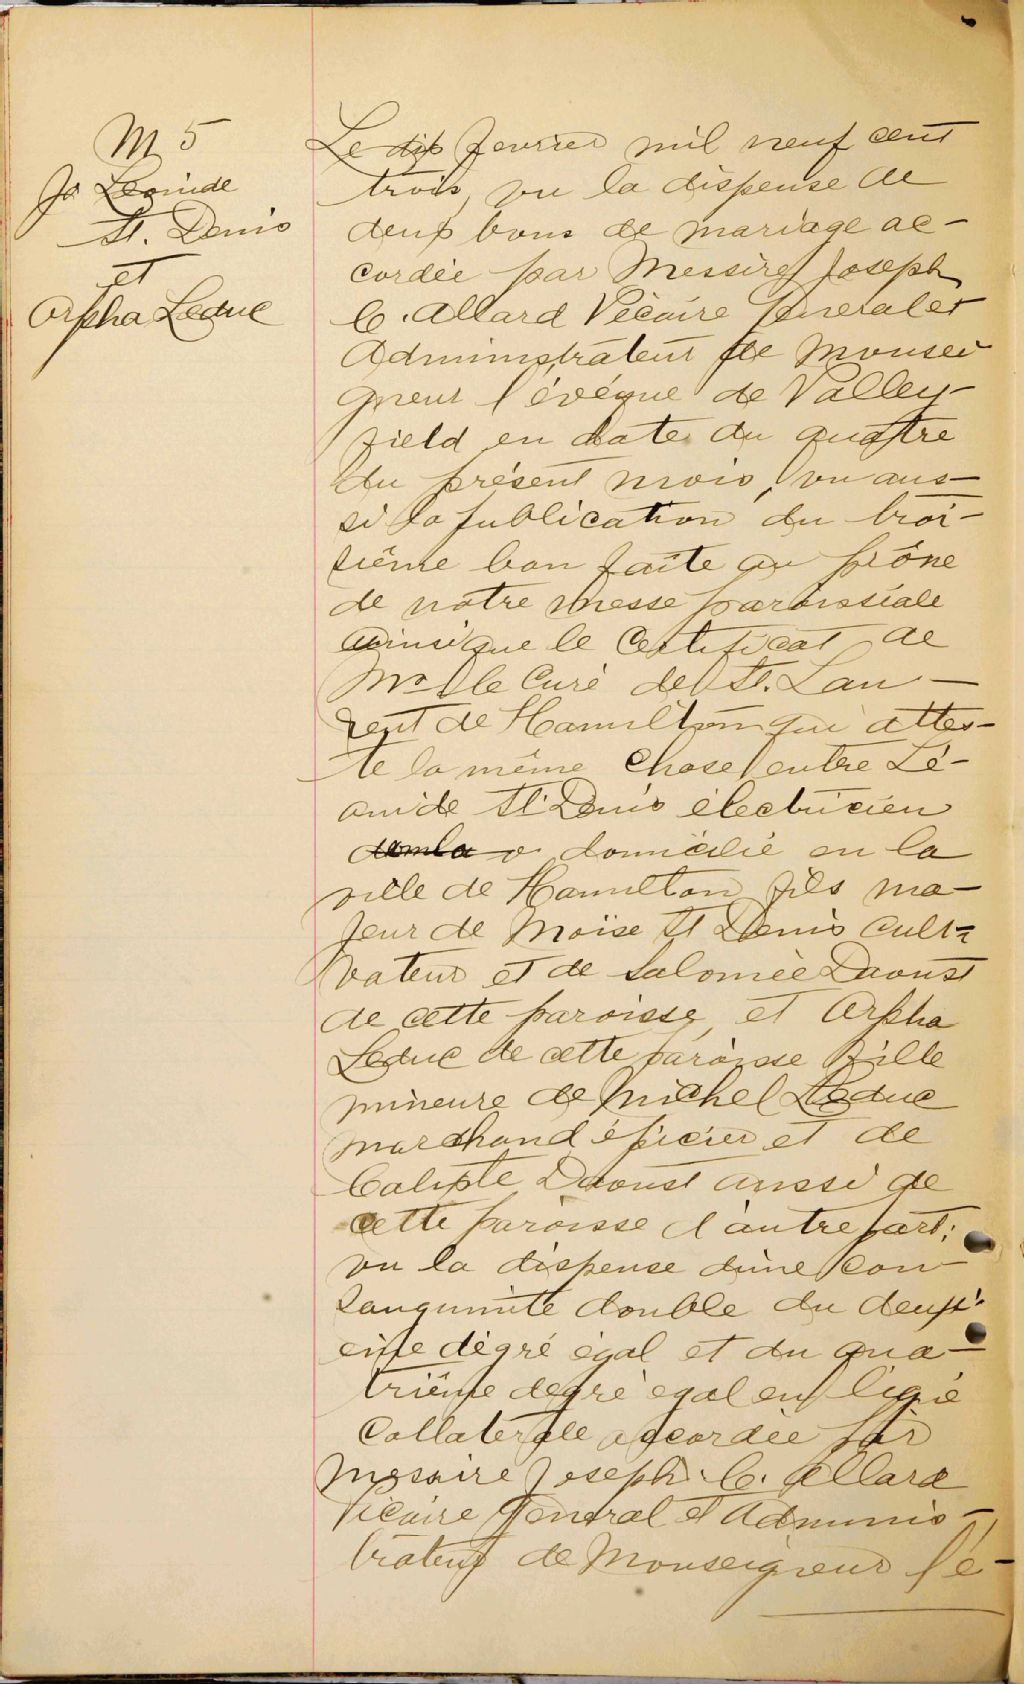 M 5
Jos Leonide
St. Denis
et
Orpha Leduc
Le dix fevrier mil neuf cent
trois, vu la dispense de
deux bans de mariage ac-
cordée par Messire Joseph
C. Allard Vicaire General et
Administrateur de Monsei
gneur l'évéque de Valley-
field en date du quatre
du présent mois, vu aus-
si la publication du troi-
siême ban faite au prône
de notre messe paroissiale
ainsi que le Certificat de
Mr le Curé de St. Lau-
rent de Hamilton qui attes-
te la même chose entre Lé-
onide St Denis électricien
domicilié en la
ville de Hamilton fils ma-
jeur de Moïse St Denis Culti-
vateur et de Salomée Daoust
de cette paroisse, et Orpha
Leduc de cette paroisse fille
mineure de Michel Leduc
marchand épicier et de
Calixte Daoust aussi de
cette paroisse d'autre part;
vu la dispense d'une con-
sanguinité double du deuxi-
eme dégré égal et du qua-
triême degré egal en ligne
Collaterale accordée par
Messire Joseph. C. Allard
Vicaire General et Adminis-
trateur de Monseigneur l'é-